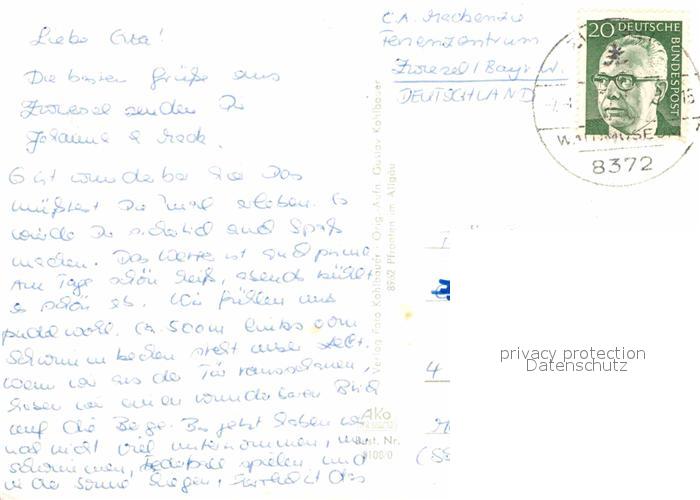 Liebe Uta!
Die besten Grüße aus
Zwiesel senden Dir
Johanna & Mack.
Es ist wunderbar hier. Das
müßtest Du mal erleben. Es
würde Dir sicherlich auch Spaß
machen. Das Wetter ist auch prima.
Am Tage schön heiß, abends kühlt
es schön ab. Wir fühlen uns
pudelwohl. Ca. 500 m links vom
Schwimmbecken steht unser Zelt.
Wenn wir aus der Tür rausschauen,
haben wir einen wunderbaren Blick
auf die Berge. Bis jetzt haben wir
noch nicht viel unternommen, nur
schwimmen, Federball spielen und
in der Sonne liegen,
C.A. Mackenzie
Ferienzentrum
Zwiesel / Bayr. W.
DEUTSCHLAND
20 DEUTSCHE
BUNDESPOST
8372
Verlag Foto Kohlbauer · Orig. Aufn. Gustav Kohlbauer
8962 Pfronten im Allgäu
Ako
Best. Nr.
4
privacy protection
Datenschutz